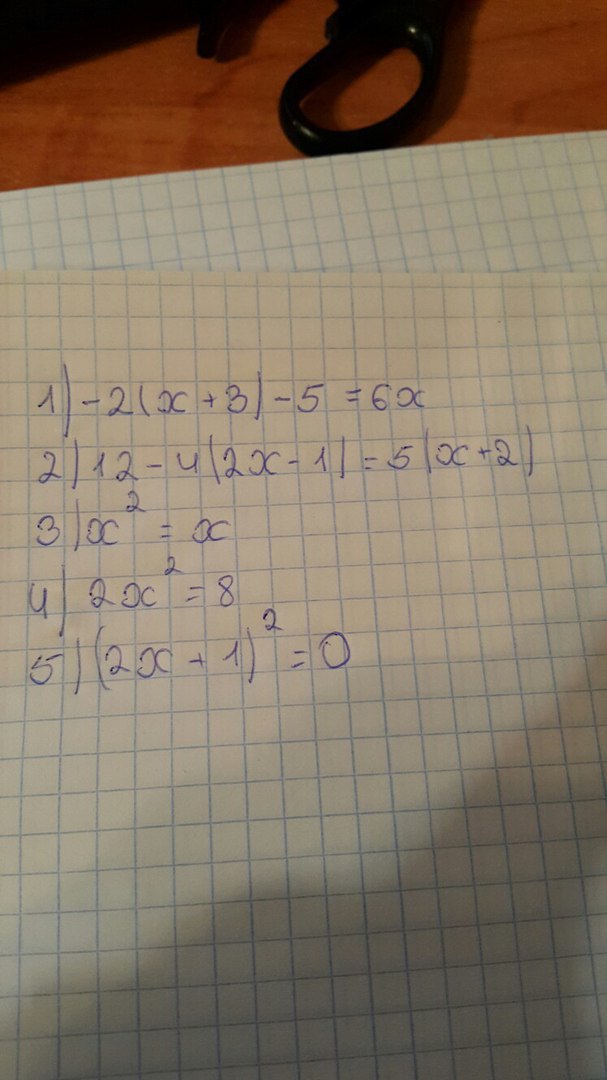 1) -2(x+3)-5=6x
2) 12-4(2x-1)=5(x+2)
3) x²=x
4) 2x²=8
5) (2x+1)²=0